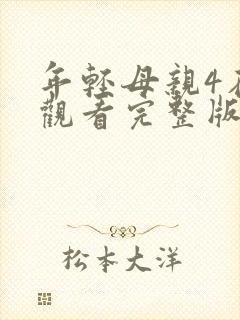 年轻母親4在
觀看完整版
松本大洋